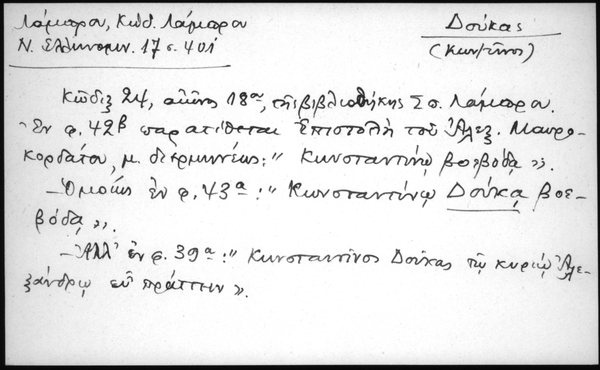 Λάμπρου, Κώδ. Λάμπρου
Ν. Ἑλληνομν. 17 σ. 401
Δούκας
(Κων/τῖνος)
Κῶδιξ 24, αἰῶνος 18ου, τῆς βιβλιοθήκης Σπ. Λάμπρου.
- Ἐν φ. 42β παρατίθεται Ἐπιστολὴ τοῦ Ἀλεξ. Μαυρο-
κορδάτου, μ. διερμηνέως: " Κωνσταντίνῳ βοεβόδᾳ ».
- Ὁμοίως ἐν φ. 43α: " Κωνσταντίνῳ Δούκᾳ βοε-
βόδᾳ ».
- Ἀλλ' ἐν φ. 39α: " Κωνσταντῖνος Δούκας τῷ κυρίῳ Ἀλε-
ξάνδρῳ εὖ πράττειν ».